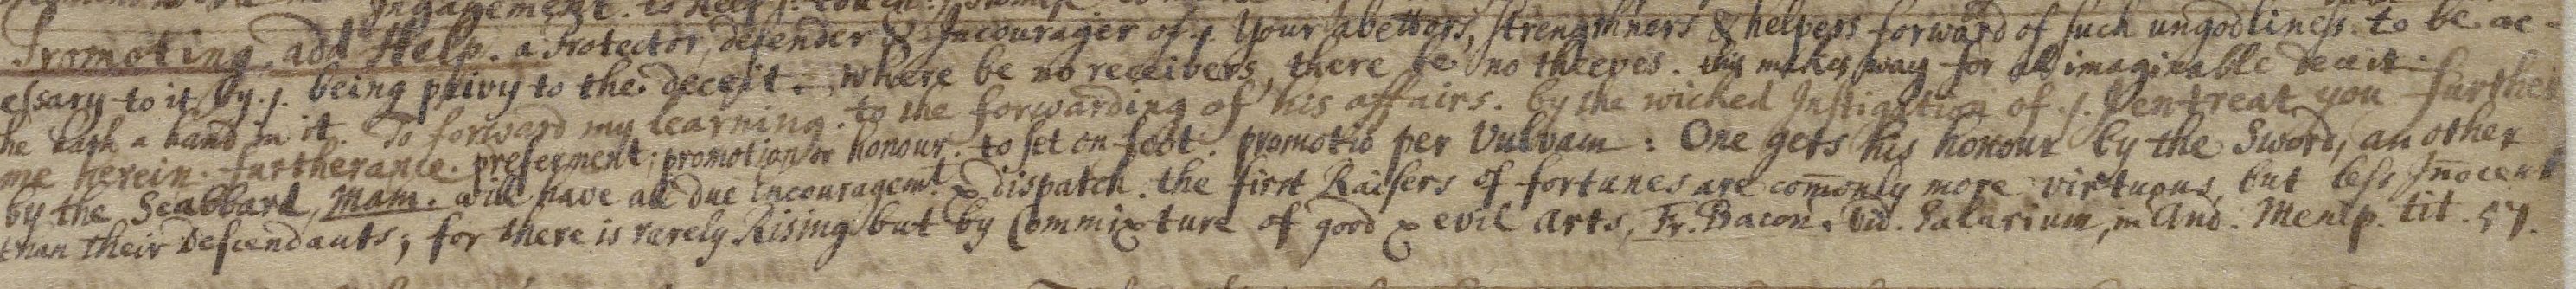 Ingagement. to Help
Promoting. add Help. a Protector, defender & Incourager of. Your abettors, strengthners & helpers forward of such ungodliness. to be ac-
cessary to it, by. being privy to the deceit. where be no receivers, there be no theeves. this makes way for all imaginable deceit.
he hath a hand in it. To forward my learning. to the forwarding of his affairs. by the wicked Instigation of. I entreat you further
me herein. furtherance. preferment; promotion or honour. to set on foot. promotio per Vulvam: One gets his honour by the Sword, another
by the Scabbard, Mam. will have all due Encouragemt. & dispatch. the first Raisers of fortunes are comonly more virtuous, but less Inocent
than their Descendants; for there is rarely Rising but by Commixture of good & evil Arts, Fr. Bacon. Vid. Salarium, in And. Menlp. tit. 57.